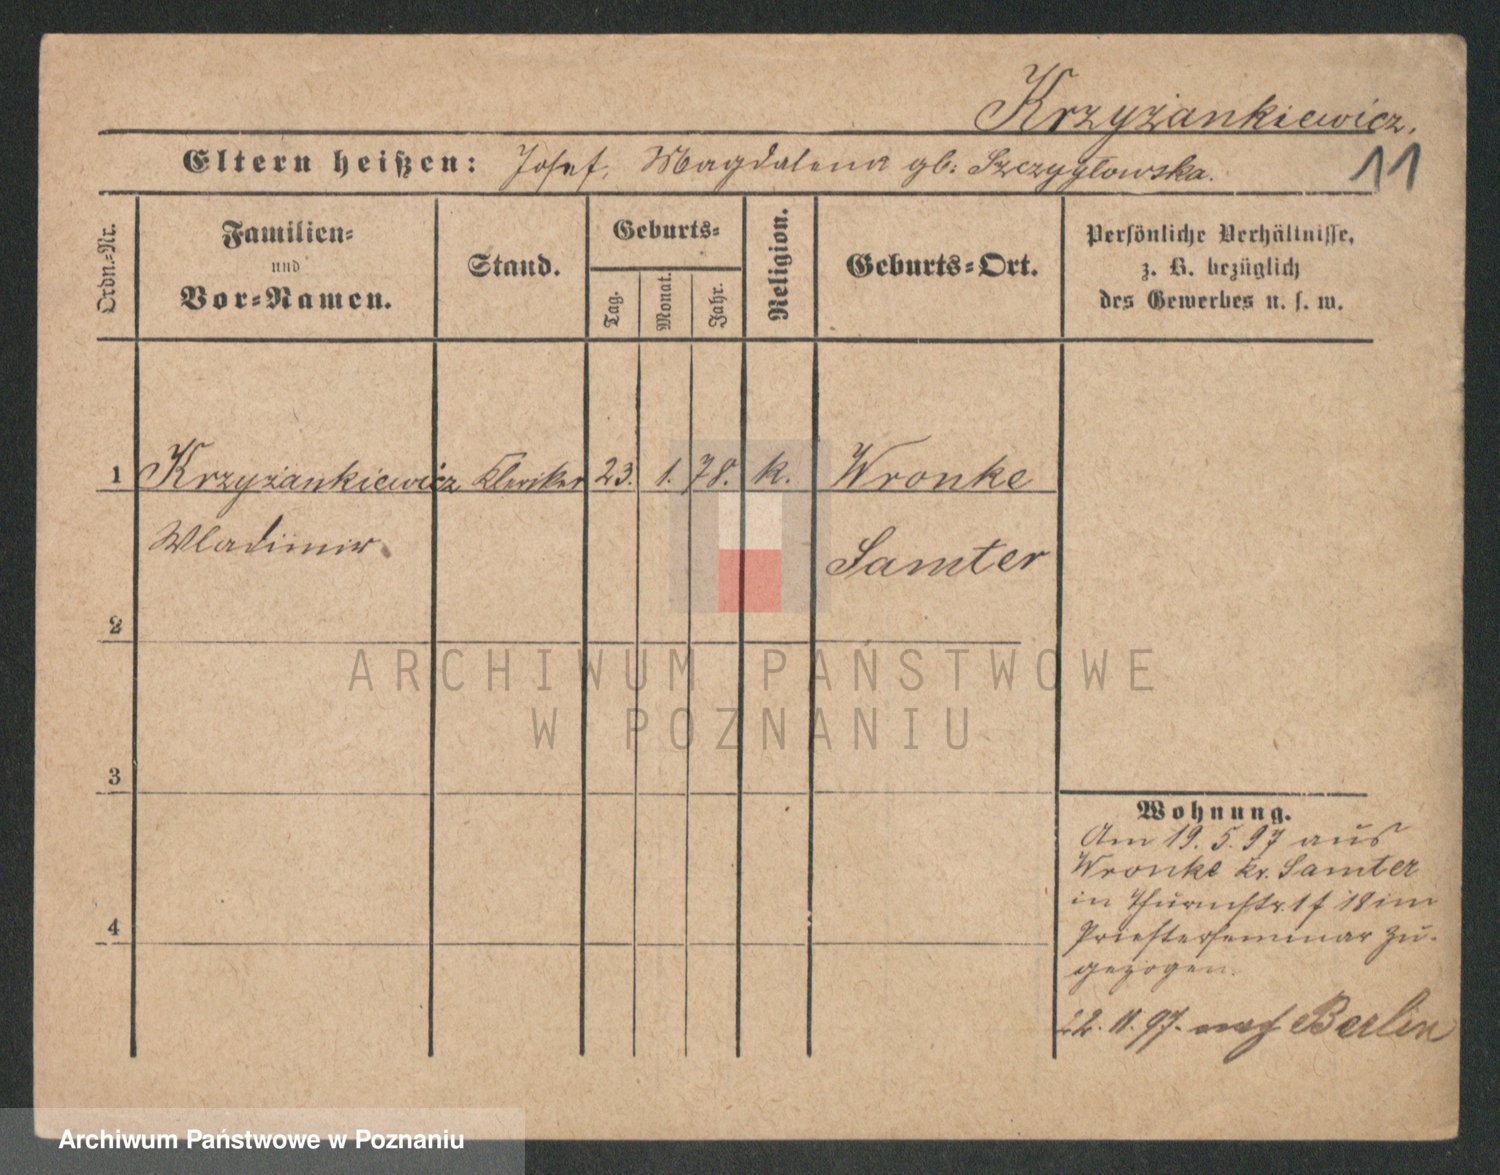 Krzyżankiewicz.
Eltern heißen: Josef, Magdalena gb: Szczygłowska.
11
Ordn.-Nr.
Familien-
und
Vor-Namen.
Stand.
Geburts-
Tag.
Monat.
Jahr.
Religion.
Geburts-Ort.
Persönliche Verhältnisse,
z. B. bezüglich
des Gewerbes u. s. w.
1 Krzyżankiewicz Kleriker 23. 1. 78. k. Wronke
Wladimir Samter
2
ARCHIWUM PAŃSTWOWE
W POZNANIU
3
Wohnung.
Am 19. 5. 97 aus
Wronke kr. Samter
in Thurmstr. 18 im
4
Priesterseminar zu-
gezogen.
22. 11. 97. nach Berlin
Archiwum Państwowe w Poznaniu